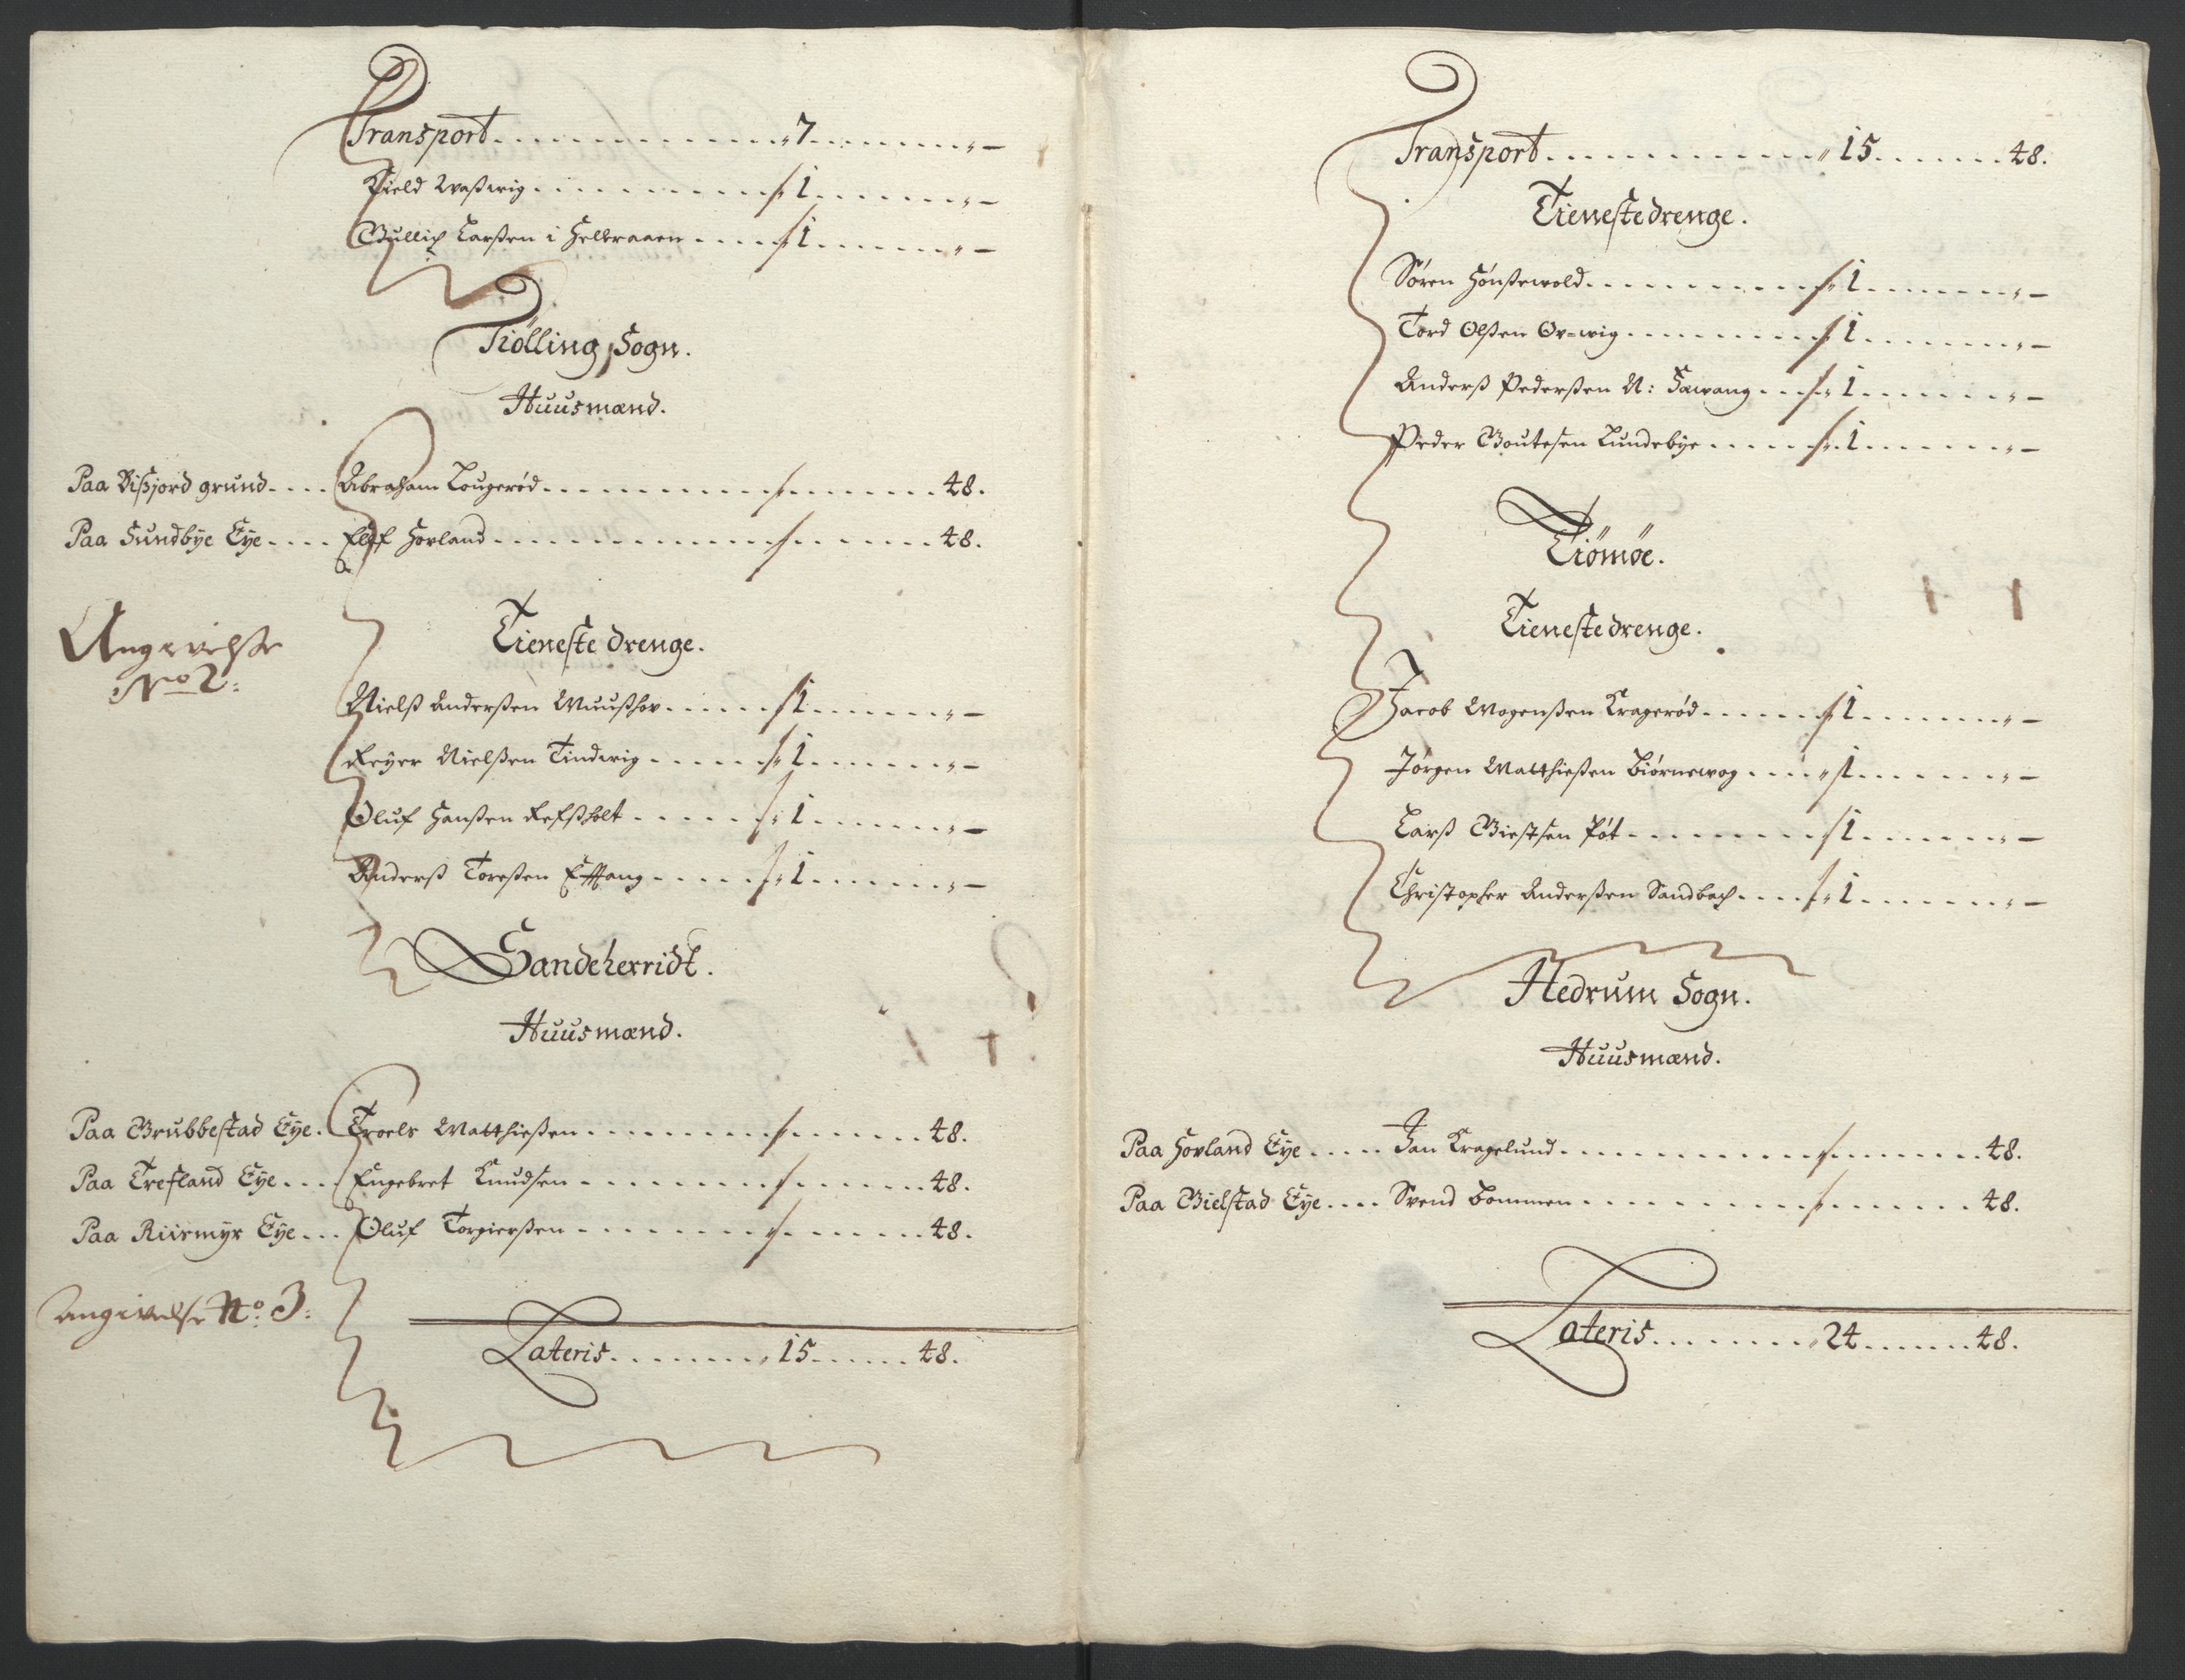 Transport . . . . 7 . . . . –
Kield Waßwig . . . . 1 . . . . –
Gullich Larßen i Helleraaen . . . . 1 . . . . –
Tiölling Sogn.
Huusmænd.
Paa Dißjord grund . . . . Abraham Lougerød . . . . 48.
Paa Sundbye Eye . . . . Elef Hovland . . . . 48.
Angivelße
No 2:
Tieneste drenge.
Nielß Anderßen Muußhov . . . . 1 . . . . –
Reyer Nielßen Tindvig . . . . 1 . . . . –
Oluf Hanßen Refßholt . . . . 1 . . . . –
Anderß Toreßen Efftang . . . . 1 . . . . –
Sandeherridt.
Huusmænd.
Paa Grubbestad Eye . Troels Matthießen . . . . 48.
Paa Trefland Eye . . . Engebret Knudsen . . . . 48.
Paa Riirmyr Eye . . . Oluf Torgierßen . . . . 48.
Angivelse No. 3:
Lateris . . . . 15 . . . . 48.
Transport . . . . 15 . . . . 48.
Tienestedrenge.
Søren Hønßewold . . . . 1 . . . . –
Tord Olßen Ør=wig . . . . 1 . . . . –
Anderß Pederßen N: Fævang . . . . 1 . . . . –
Peder Goutesen Lundebye . . . . 1 . . . . –
Tiömöe.
Tienestedrenge.
Jacob Mogenßen Kragerød . . . . 1 . . . . –
Jørgen Matthießen Biørnevog . . . . 1 . . . . –
Larß Giestsen Pøt . . . . 1 . . . . –
Christopher Anderßen Sandbech . . . . 1 . . . . –
Hedrum Sogn.
Huusmænd.
Paa Hovland Eye . . . . Jan Kragelund . . . . 48.
Paa Gielstad Eye . . . . Svend Bommen . . . . 48.
Lateris . . . . 24 . . . . 48.